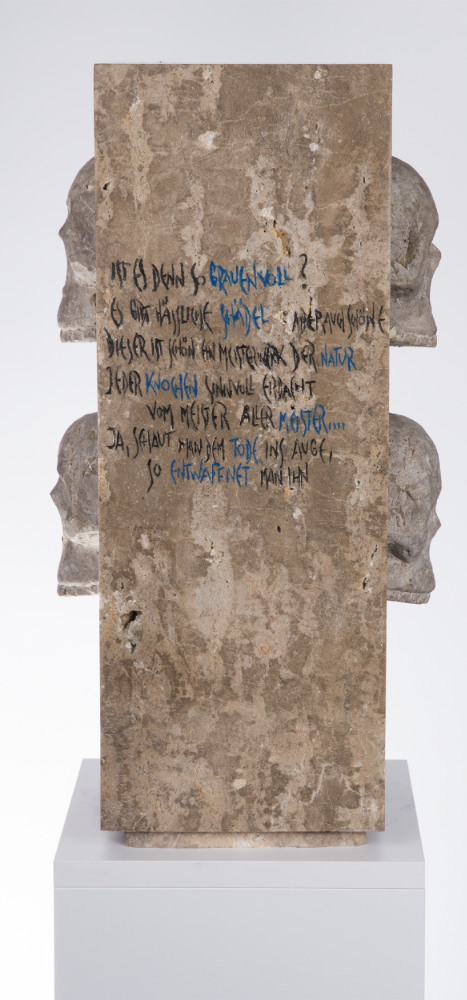 IST ES DENN SO GRAUENVOLL?
ES GIBT HÄSSLICHE SCHÄDEL ABER AUCH SCHÖNE
DIESER IST SCHÖN EIN MEISTERWERK DER NATUR
JEDER KNOCHEN SINNVOLL ERDACHT
VOM MEISTER ALLER MEISTER....
JA, SCHAUT MAN DEM TODE INS AUGE,
SO ENTWAFENET MAN IHN